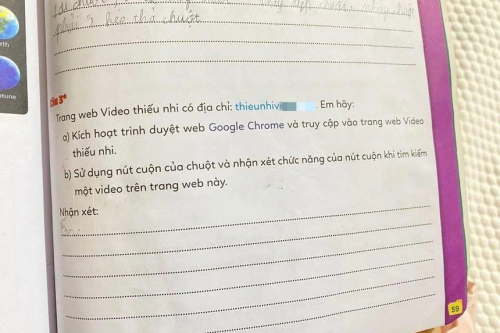 phải 2 kẹp thả chuột
rth
Trang web Video thiếu nhi có địa chỉ: thieunhivi . Em hãy:
a) Kích hoạt trình duyệt web Google Chrome và truy cập vào trang web Video
thiếu nhi.
b) Sử dụng nút cuộn của chuột và nhận xét chức năng của nút cuộn khi tìm kiếm
một video trên trang web này.
Nhận xét:
59